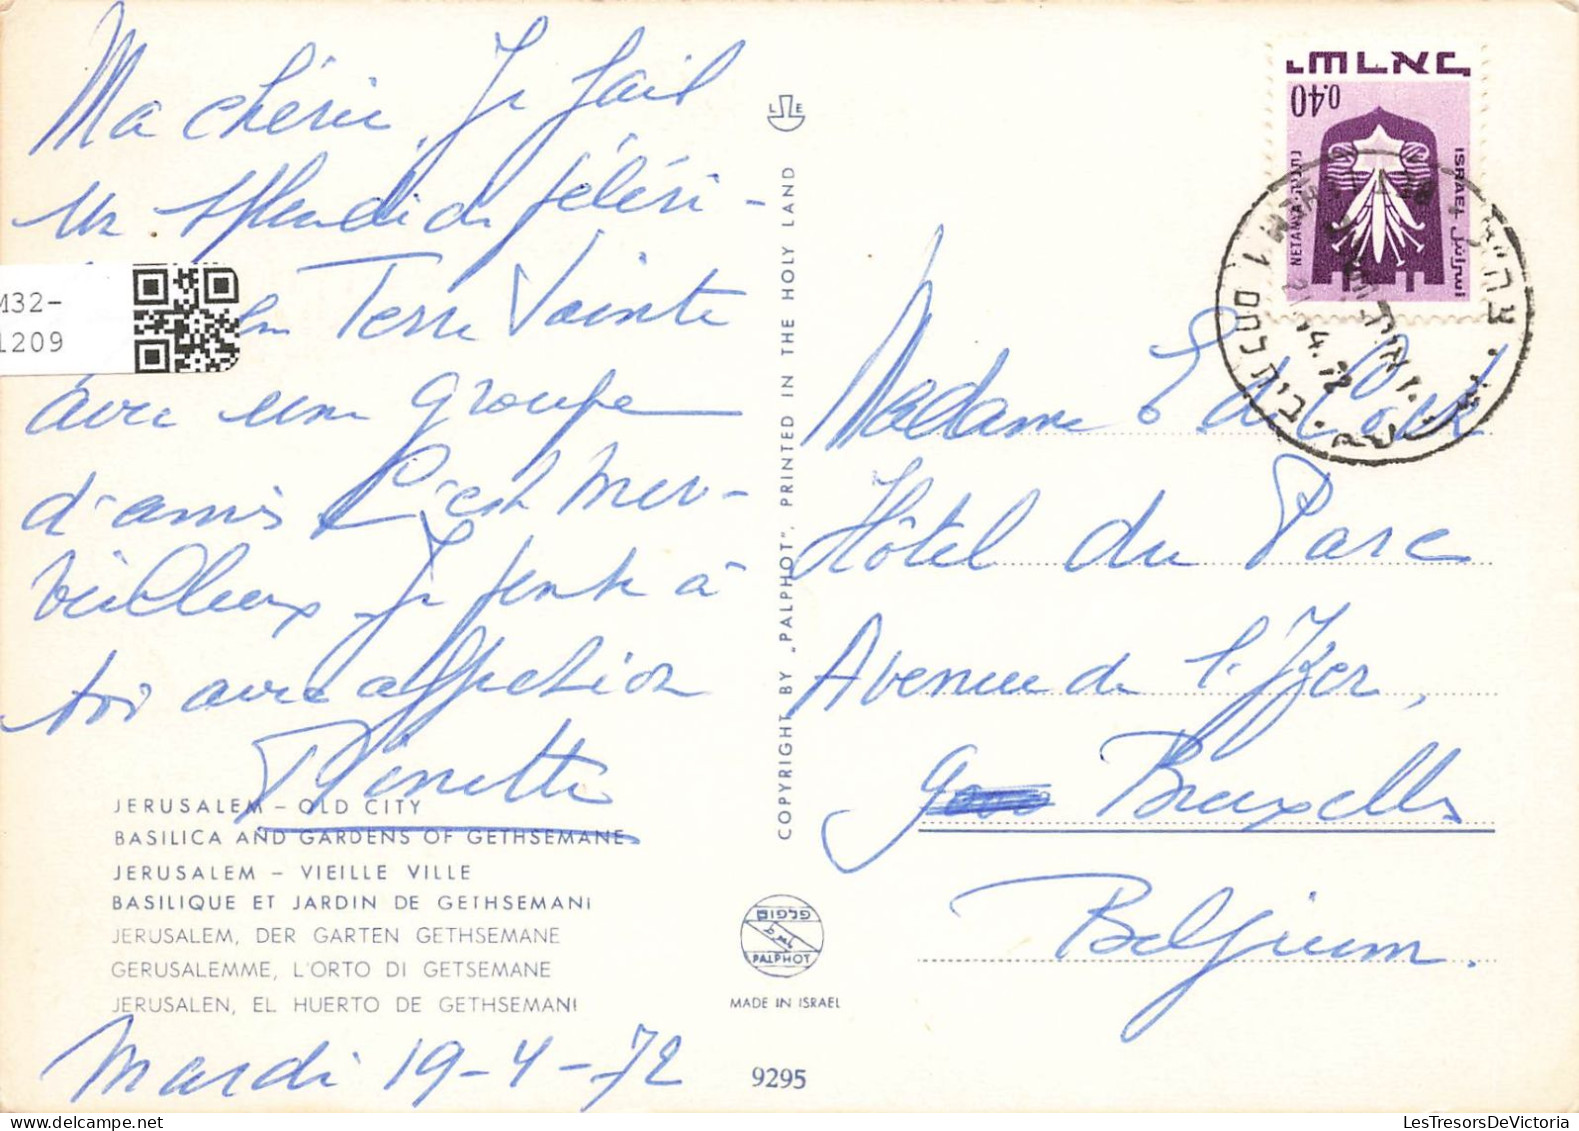 Ma chérie, Je fais
un splendide pèleri-
en Terre Sainte
avec un groupe
d'amis C'est mer-
veilleux Je pense à
toi avec affection
Ninette
JERUSALEM – OLD CITY
BASILICA AND GARDENS OF GETHSEMANE
JERUSALEM – VIEILLE VILLE
BASILIQUE ET JARDIN DE GETHSEMANI
JERUSALEM, DER GARTEN GETHSEMANE
GERUSALEMME, L'ORTO DI GETSEMANE
JERUSALEN, EL HUERTO DE GETHSEMANI
Mardi 19-4-72
M32-
1209
L E
COPYRIGHT BY „PALPHOT". PRINTED IN THE HOLY LAND
פלפוט
PALPHOT
MADE IN ISRAEL
9295
ישראל
0.40
נתניה·NETANYA
ISRAEL اسرائيل
Madame E de Cock
Hôtel du Parc
Avenue de l'Yzer,
Bruxelles
Belgium.
LesTresorsDeVictoria.com